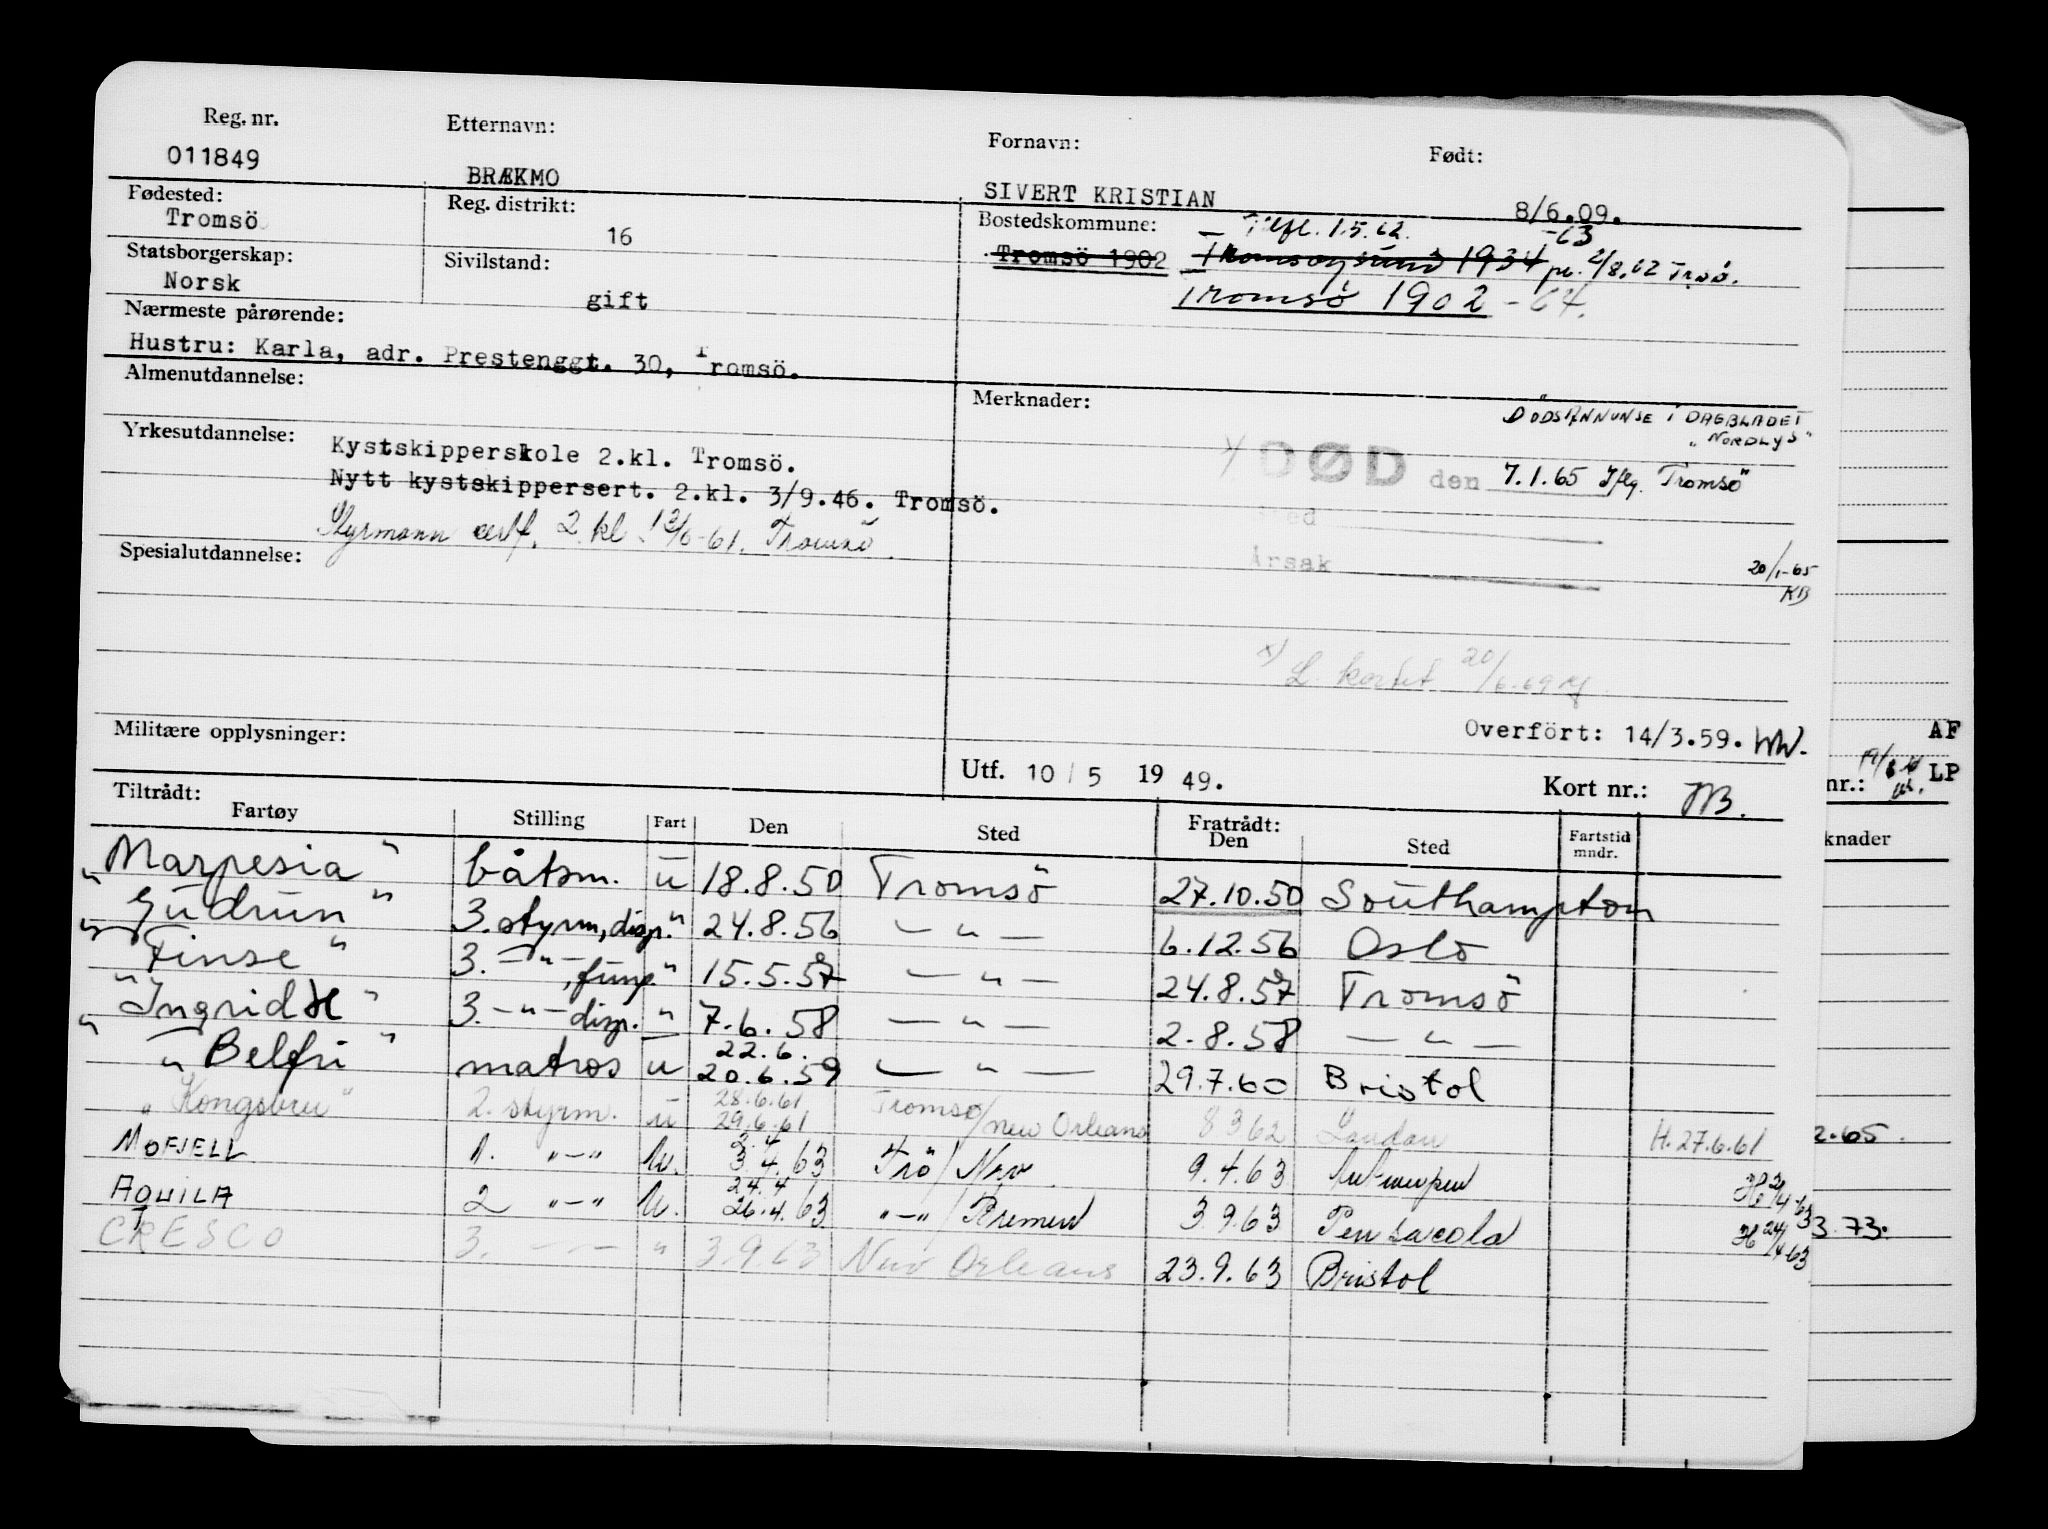 Reg. nr. Etternavn: Fornavn: Født:
011849 BRÆKMO SIVERT KRISTIAN 8/6.09.
Fødested: Reg. distrikt: Bostedskommune: 1.5.62. -63
Tromsö 16 Tromsö 1902 Tromsöysund 1934 2/8.62 Trsö.
Statsborgerskap: Sivilstand: Tromsö 1902 - 64.
Norsk gift
Nærmeste pårørende:
Hustru: Karla, adr. Prestenggt. 30, Tromsö.
Almenutdannelse: Merknader: DÖDSANNONSE I DAGBLADET
"NORDLYS"
Yrkesutdannelse: Kystskipperskole 2.kl. Tromsö. x) DØD den 7.1.65 Iflg. Tromsö
Nytt kystskippersert. 2.kl. 3/9.46. Tromsö.
Sted
Styrmann sertf. 2 kl. Tromsö.
Spesialutdannelse: Årsak 20/1-65
KB
x) L. kortet 20/6.69
Overfört: 14/3.59. WW.
Militære opplysninger: AF
Utf. 10 / 5 19 49. Kort nr.: nr.: LP
Tiltrådt: Fratrådt:
Fartøy Stilling Fart Den Sted Den Sted Fartstid mndr. knader
"Marpesia" båtsm. u 18.8.50 Tromsö 27.10.50 Southampton
"Gudrun" 3. styrm, disp. " 24.8.56 — " — 6.12.56 Oslo
"Finse" 3. —"—, fung. " 15.5.57 — " — 24.8.57 Tromsö
"Ingrid" 3. —"— disp. " 7.6.58 — " — 2.8.58 — " —
22.6.
"Belfri" matros u 20.6.59 — " — 29.7.60 Bristol
28.6.61
"Kongsbru" 2. styrm. u 29.6.61 Tromsö/New Orleans 8 3 62 London H. 27.6.61 2.65.
MOFJELL 1. "—" U. 3.4.63 Trö / Nor 9.4.63 Antwerpen
24.4
AQUILA 2 "—" U. 26.4.63 "—" / Bremen 3.9.63 Pensacola 3.73.
CRESCO 3. —"— " 3.9.63 New Orleans 23.9.63 Bristol